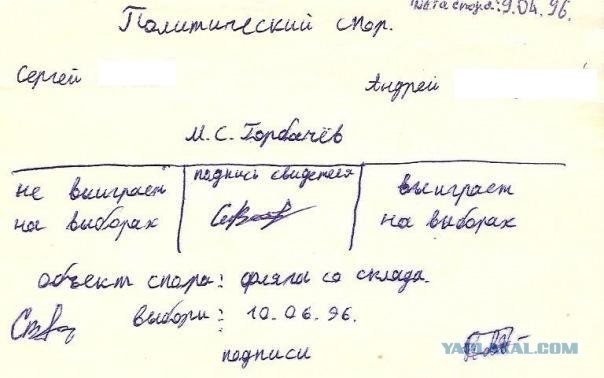 Дата спора: 9.04.96.
Политический спор.
Сергей
Андрей
М.С. Горбачёв
не выиграет
на выборах
подпись свидетеля
выиграет
на выборах
объект спора: фляга со склада.
выборы: 10.06.96.
подписи
YAPLAKAL.COM